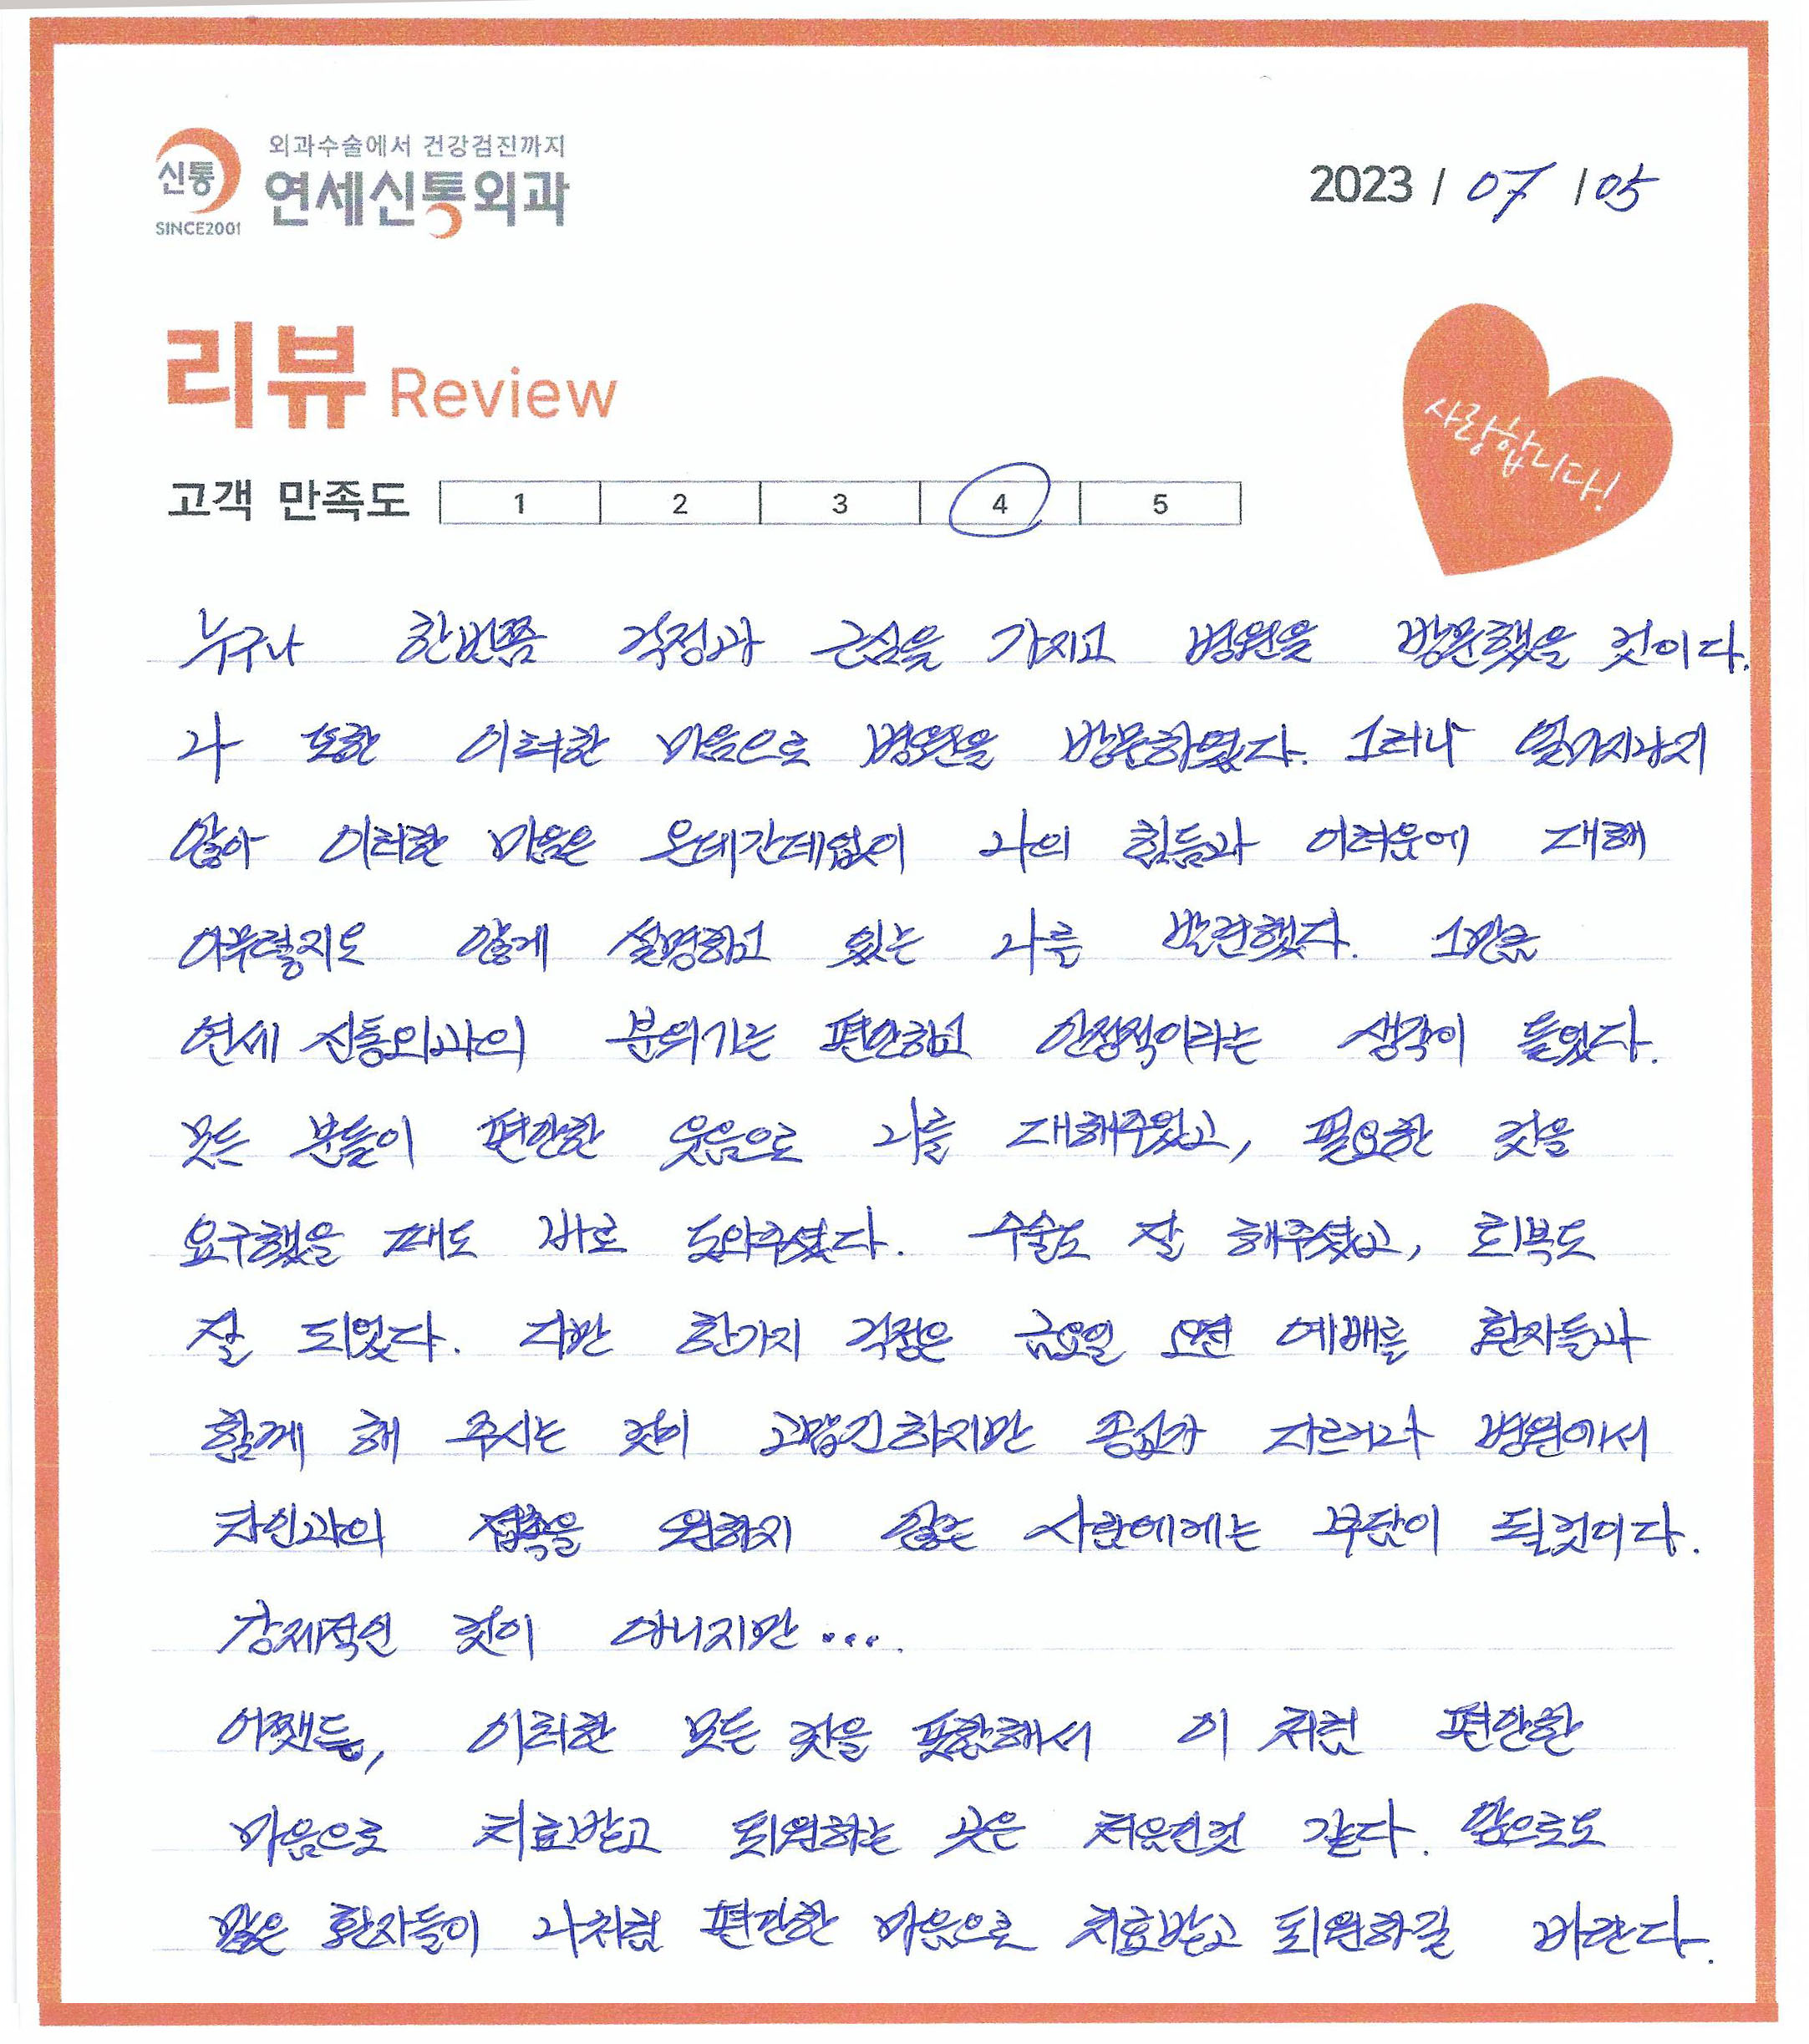 외과수술에서 건강검진까지
신통
연세신통외과
SINCE2001
2023 / 07 / 05
리뷰 Review
사랑합니다!
고객 만족도 1 2 3 4 5
누구나 한번쯤 걱정과 근심을 가지고 병원을 방문했을 것이다.
나 또한 이러한 마음으로 병원을 방문하였다. 그러나 얼마지나지
않아 이러한 마음은 온데간데없이 나의 힘듦과 어려움에 대해
아무렇지도 않게 설명하고 있는 나를 발견했다. 그만큼
연세 신통외과의 분위기는 편안하고 안정적이라는 생각이 들었다.
모든 분들이 편안한 웃음으로 나를 대해주었고, 필요한 것을
요구했을 때도 바로 도와주셨다. 수술도 잘 해주셨고, 회복도
잘 되었다. 다만 한가지 걱정은 금요일 오전 예배를 환자들과
함께 해 주시는 것이 고맙긴 하지만 종교가 다르거나 병원에서
타인과의 접촉을 원하지 않는 사람에게는 부담이 될것이다.
강제적인 것이 아니지만....
어쨋든, 이러한 모든 것을 포함해서 이 처럼 편안한
마음으로 치료받고 퇴원하는 곳은 처음인것 같다. 앞으로도
많은 환자들이 나처럼 편안한 마음으로 치료받고 퇴원하길 바란다.